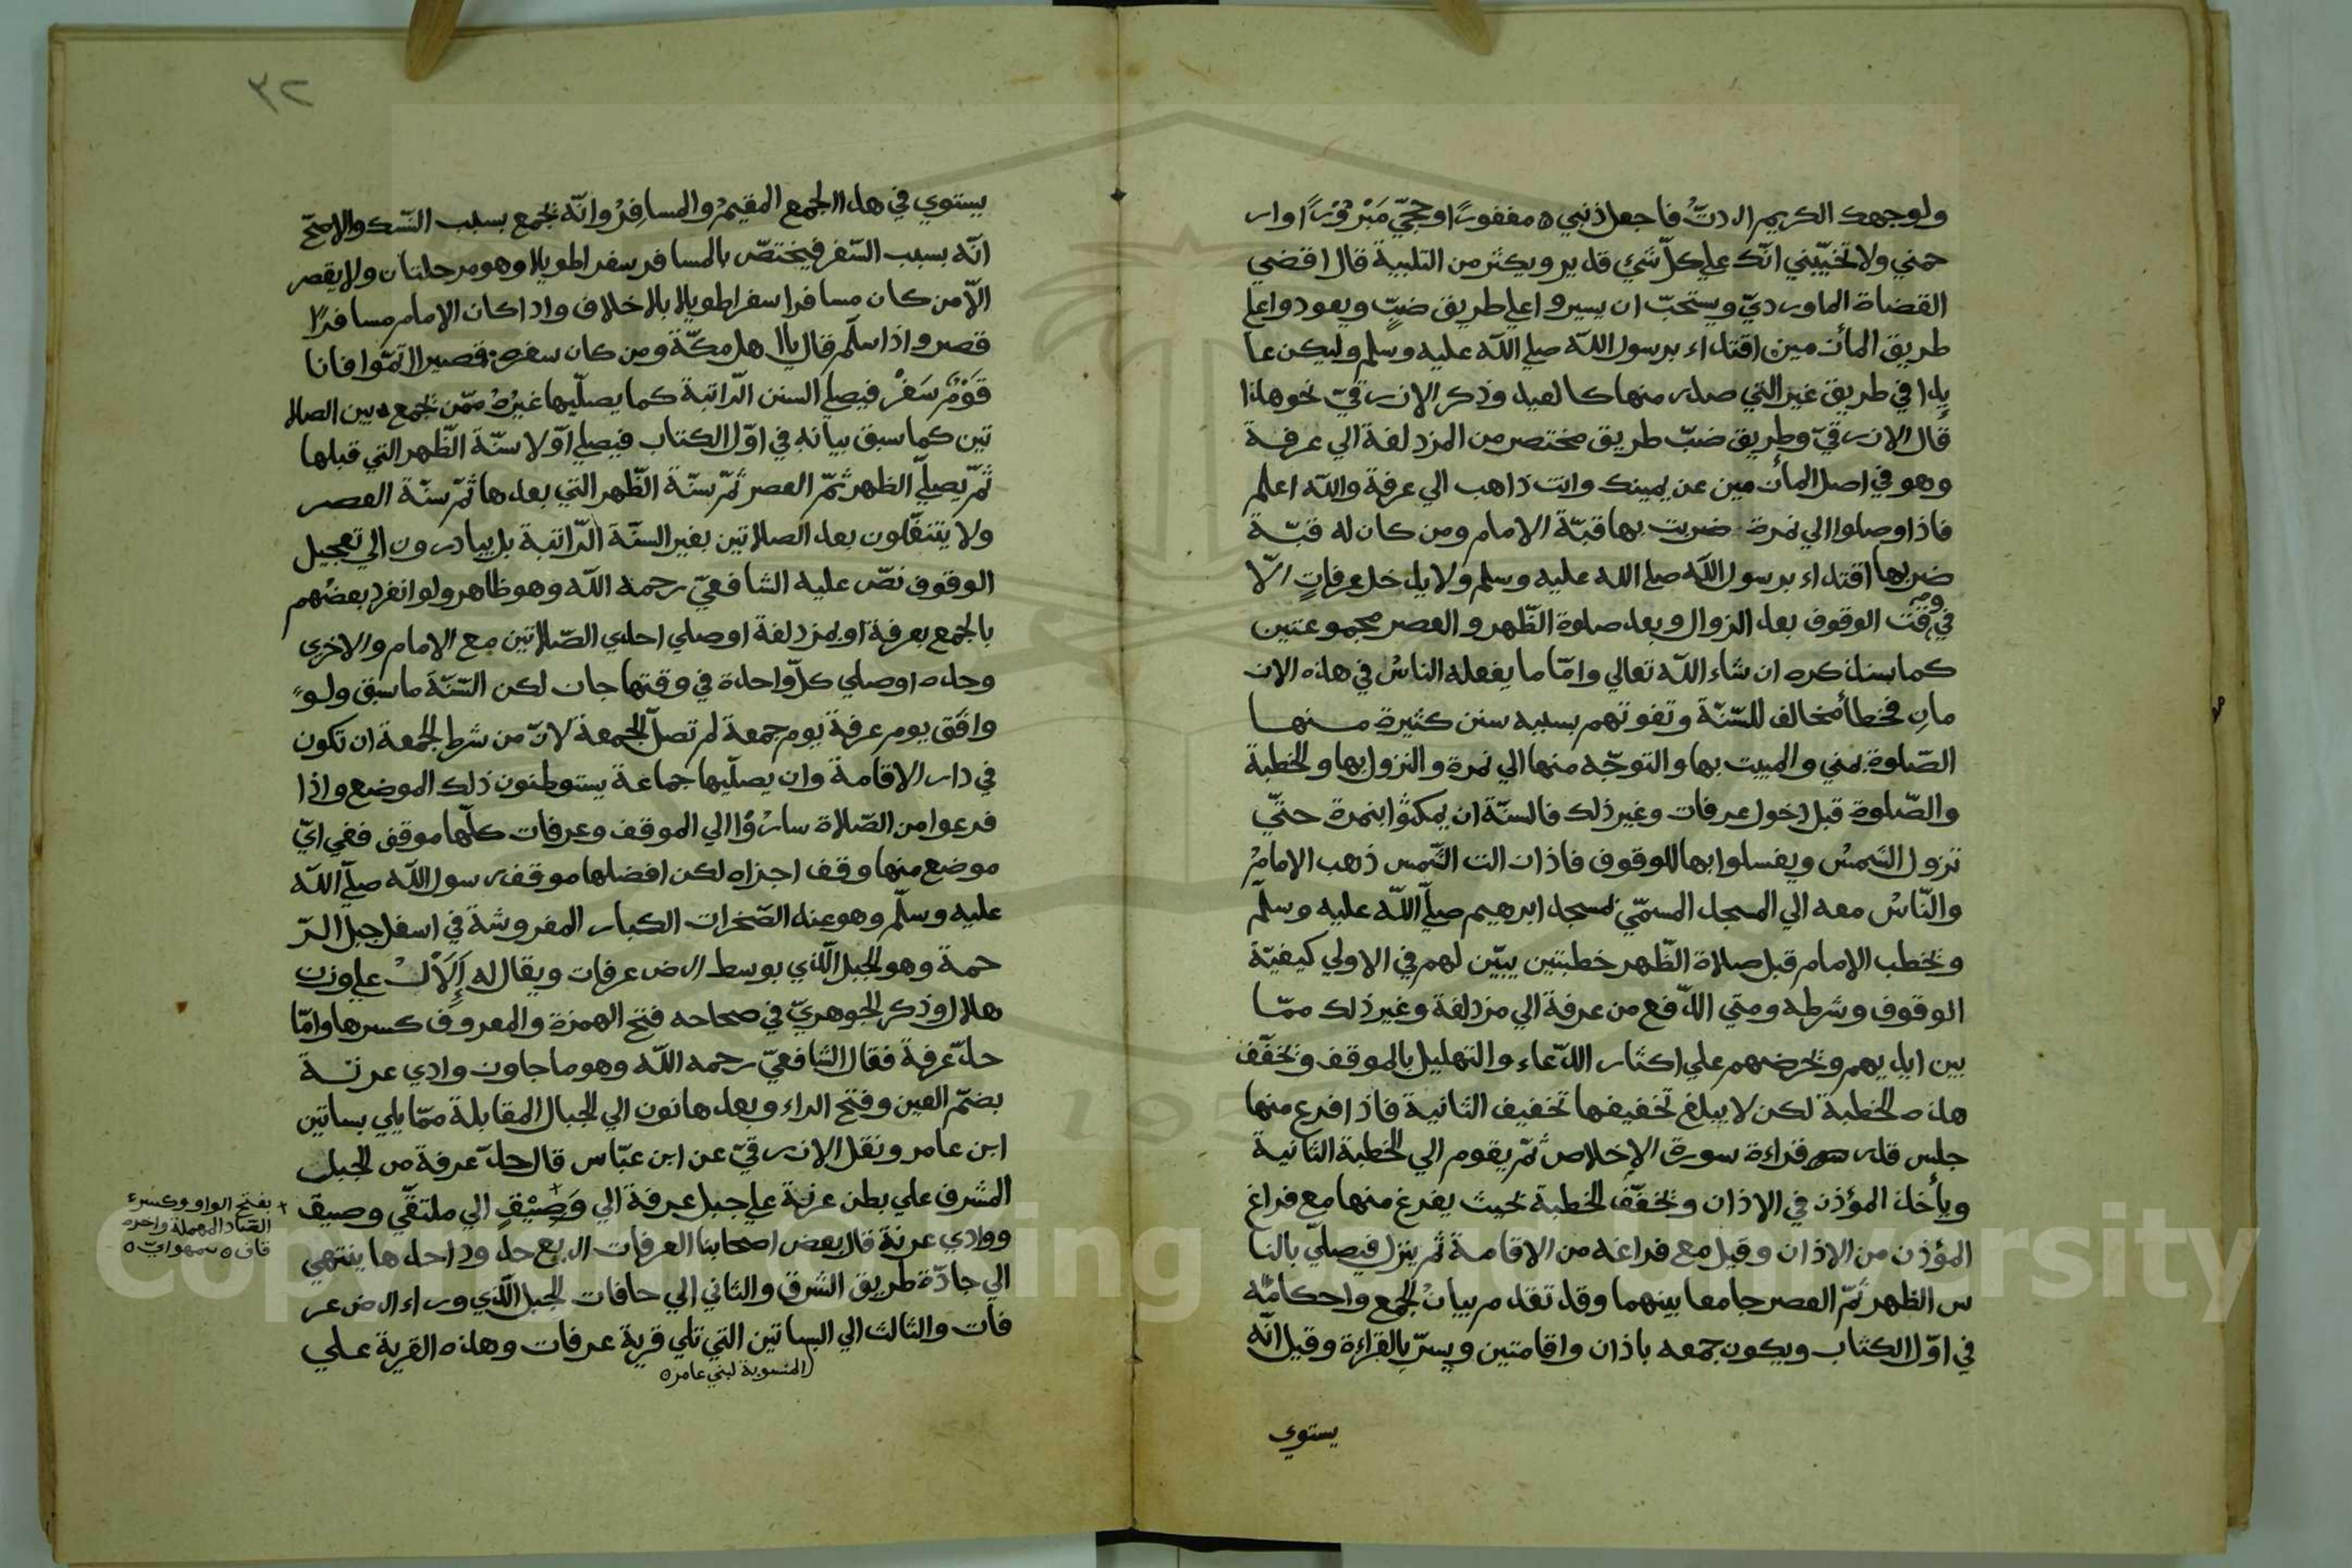 ولوجهك الكريم اردتُ فاجعل ذنبي مغفورًا وحجّي مَبْرُوْرًا وار
حمني ولا تخيّبني انّك علي كلّ شئ قدير ويكثر من التلبية قال اقضي
القضاة الماورديّ ويستحبّ ان يسيروا علي طريق ضبٍّ ويعودوا علي
طريق المأزمين اقتداء برسول اللّه صلي اللّه عليه وسلم وليكن عا
يدا في طريق غير التي صدر منها كالعيد وذكر الازرقيّ نحو هذا
قال الازرقيّ وطريق ضبّ طريق مختصر من المزدلفة الي عرفة
وهو في اصل المأزمين عن يمينك وانت ذاهب الي عرفة واللّه اعلم
فاذا وصلوا الي نمرة ضربت بها قبّة الامام ومن كان له قبّة
ضربها اقتداء برسول اللّه صلي الله عليه وسلم ولا يدخل عرفاتٍ الّا
في وقت الوقوف بعد الزوال وبعد صلوة الظّهر والعصر مجموعتين
كما سنذكره ان شاء اللّه تعالي وامّا ما يفعله الناسُ في هذه الاز
مانِ فخطأ مخالف للسّنّة وتفوتهم بسببه سنن كثيرة منها
الصّلوة بمني والمبيت بها والتوجّه منها الي نمرة والنزول بها والخطبة
والصّلوة قبل دخول عرفات وغير ذلك فالسنّة ان يمكثوا بنمرة حتّي
تزول الشمسُ ويغسلوا بها للوقوف فاذا زالت الشّمس ذهب الامامُ
والنّاسُ معه الي المسجد المسمّي مسجد ابرهيم صلّي اللّه عليه وسلّم
ويخطب الامام قبل صلاة الظّهر خطبتين يبيّن لهم في الاولي كيفيّة
الوقوف وشرطه ومتي الدّفع من عرفة الي مزدلفة وغير ذلك ممّا
بين ايديهم ويحرضهم علي اكثار الدّعاء والتهليل بالموقف ويخفّف
هذه الخطبة لكن لا يبلغ تخفيفها تخفيف الثانية فاذا فرغ منها
جلس قدر قراءة سورة الإخلاص ثمّ يقوم الي الخطبة الثانية
ويأخذ المؤذن في الاذان ويخفّف الخطبة بحيث يفرغ منها مع فراغ
المؤذن من الاذان وقيل مع فراغه من الاقامة ثم ينزل فيصلّي بالنا
س الظهر ثمّ العصر جامعا بينهما وقد تقدم بيانُ الجمع واحكامُه
في اوّل الكتاب ويكون جمعه باذان واقامتين ويسرّ بالقراءة وقيل انّه
يستوي
٣٢
يستوي في هذا الجمع المقيمُ والمسافِرُ وانّه يجمع بسبب النّسك والاصحّ
انّه بسبب السّفر فيختصّ بالمسافر سفرا طويلا وهو مرحلتان ولا يقصر
الّا من كان مسافرا سفرا طويلا بلا خلاف واذا كان الامام مسافرًا
قصر واذا سلّم قال يا اهل مكّة ومن كان سفره قصيرا اتمّوا فانا
قَوْمٌ سَفْرٌ فيصلي السنن الرّاتبة كما يصلّيها غيرُهُ ممّن يجمع بين الصلا
تين كما سبق بيانه في اوّل الكتاب فيصلي اوّلا سنّة الظّهر التي قبلها
ثمّ يصلّي الظهر ثمّ العصر ثمّ سنّة الظّهر التي بعدها ثمّ سنّة العصر
ولا يتنفّلون بعد الصلاتين بغير السنّة الرّاتبة بل يبادرون الي تعجيل
الوقوف نصّ عليه الشافعيّ رحمة اللّه وهو ظاهر ولو انفرد بعضُهم
بالجمع بعرفة او بمزدلفة او صلي احدي الصّلاتين مع الامام والاخري
وحده او صلي كلّ واحدة في وقتها جاز لكن السّنّة ما سبق ولو
وافَق يوم عرفة يوم جمعة لم تصلّ الجمعة لانّ من شرط الجمعة ان تكون
في دار الاقامة وان يصلّيها جماعة يستوطنون ذلك الموضع واذا
فرغوا من الصّلاة سارُوا الي الموقف وعرفات كلّها موقف ففي ايّ
موضع منها وقف اجزاه لكن افضلها موقف رسول اللّه صلّي اللّه
عليه وسلّم وهو عند الصّخرات الكبار المفروشة في اسفل جبل الرّ
حمة وهو الجبل الّذي بوسط ارض عرفات ويقال له إِلَالٌ علي وزن
هلال وذكر الجوهريّ في صحاحه فتح الهمزة والمعروف كسرها وامّا
حدّ عرفة فقال الشافعيّ رحمه اللّه وهو ما جاوز وادي عرنة
بضمّ العين وفتح الراء وبعدها نون الي الجبال المقابلة ممّا يلي بساتين
ابن عامر ونقل الازرقيّ عن ابن عبّاس قال حدّ عرفة من الجبل
المشرف علي بطن عرنة علي جبل عرفة الي وَصِيْقٍ الي ملتقَي وصيق
ووادي عرنة قال بعض اصحابنا العرفات اربع حدود احدها ينتهي
الي جادّة طريق الشرق والثاني الي حافات الجبل الّذي وراء ارض عر
فات والثالث الي البساتين التي تلي قرية عرفات وهذه القرية علي
المنسوبة لبني عامر
بفتح الواو وكسر
الصّاد المهملة واخره
قاف سمهوديّ